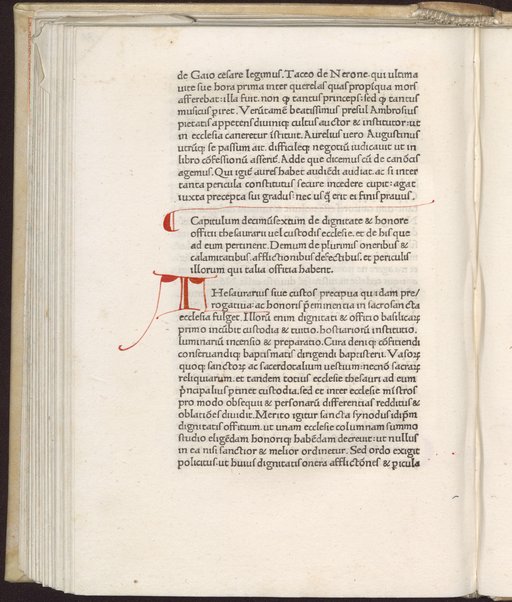 de Gaio cesare legimus. Taceo de Nerone. qui ultima
uite sue hora prima inter querelas quas propiqua mors
afferebat: illa fuit. non ꝙ tantus princeps: sed ꝙ tantus
musicus piret. Verūtamē beatissimus presul Ambrosius
pietatis appetens diuiniqꝫ cultus auctor & institutor: ut
in ecclesia caneretur īstituit. Aurelius uero Augustinus
utrūqꝫ se passum ait. difficileqꝫ negotiū iudicauit ut in
libro cōfessionū asserit. Adde que dicemus cū de canōcis
agemus. Qui igit̄ aures habet audiēdi audiat. ac si inter
tanta pericula constitutus secure incedere cupit: agat
iuxta precepta sui gradus: nec usꝙ erit ei finis prauus.
Capitulum decimūsextum de dignitate & honore
offitii thesaurarii uel custodis ecclesie. et de his que
ad eum pertinent. Demum de plurimis oneribus &
calamitatibus. afflictionibus defectibus. et periculis
illorum qui talia offitia habent.
THesaurarius siue custos precipua quadam pre/
rogatiua: ac honoris p̄eminentia in sacrosancta
ecclesia fulget. Illorū enim dignitati & offitio basilicaꝝ
primo incūbit custodia & tuitio. hostiariorū institutio.
luminariū incensio & preparatio. Cura deniqꝫ cōfitiendi
conseruandiqꝫ baptismatis dirigendi baptisterii. Vasoꝝ
quoqꝫ sanctoꝝ ac sacerdotalium uestium: necnō sacraꝝ
reliquiarum. et tandem totius ecclesie thesauri ad eum
p̄ncipalius ptinet custodia. sed et inter ecclesie mīstros
pro modo obsequii & personarū differentias redditus &
oblatiōes diuidit. Merito igitur sancta synodus idipm̄
dignitatis offitium. ut unam ecclesie columnam summo
studio eligēdam honoriqꝫ habēdam decreuit: ut nullus
in ea nisi sanctior & melior ordinetur. Sed ordo exigit
policitus. ut huius dignitatis onera afflictōnes & picula